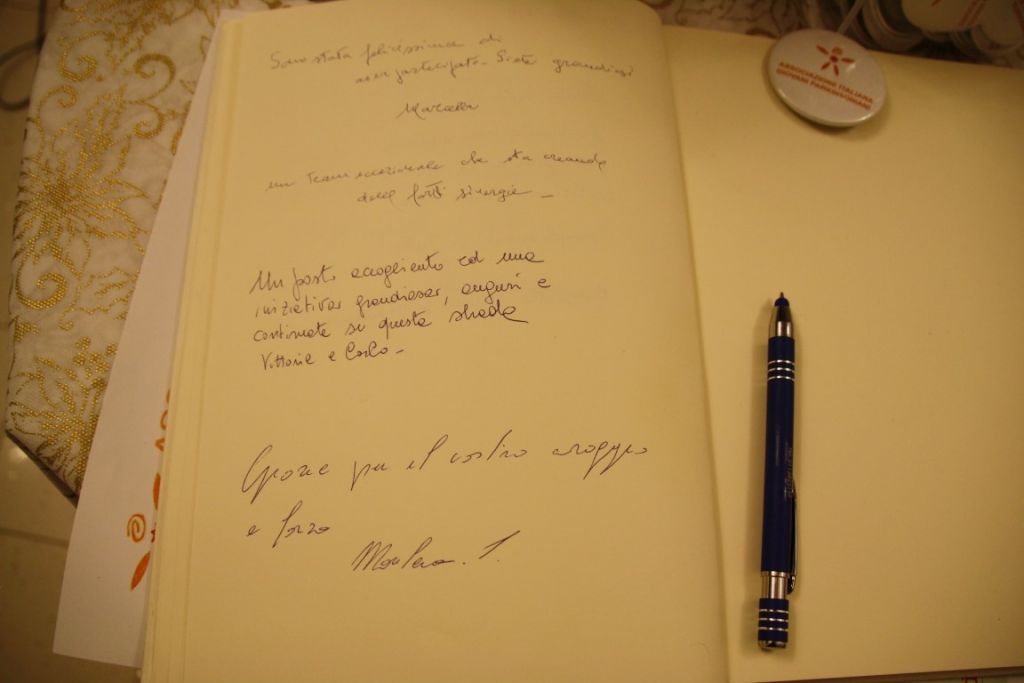 Sono stata felicissima di
aver partecipato. Siete grandiosi
Marcella
un team eccezionale che sta creando
delle forti sinergie -
Un posto accogliente ed una
iniziativa grandiosa, auguri e
continuate su questa strada
Vittoria e Carlo -
Grazie per il vostro coraggio
e forza
ASSOCIAZIONE ITALIANA
GIOVANI PARKINSONIANI